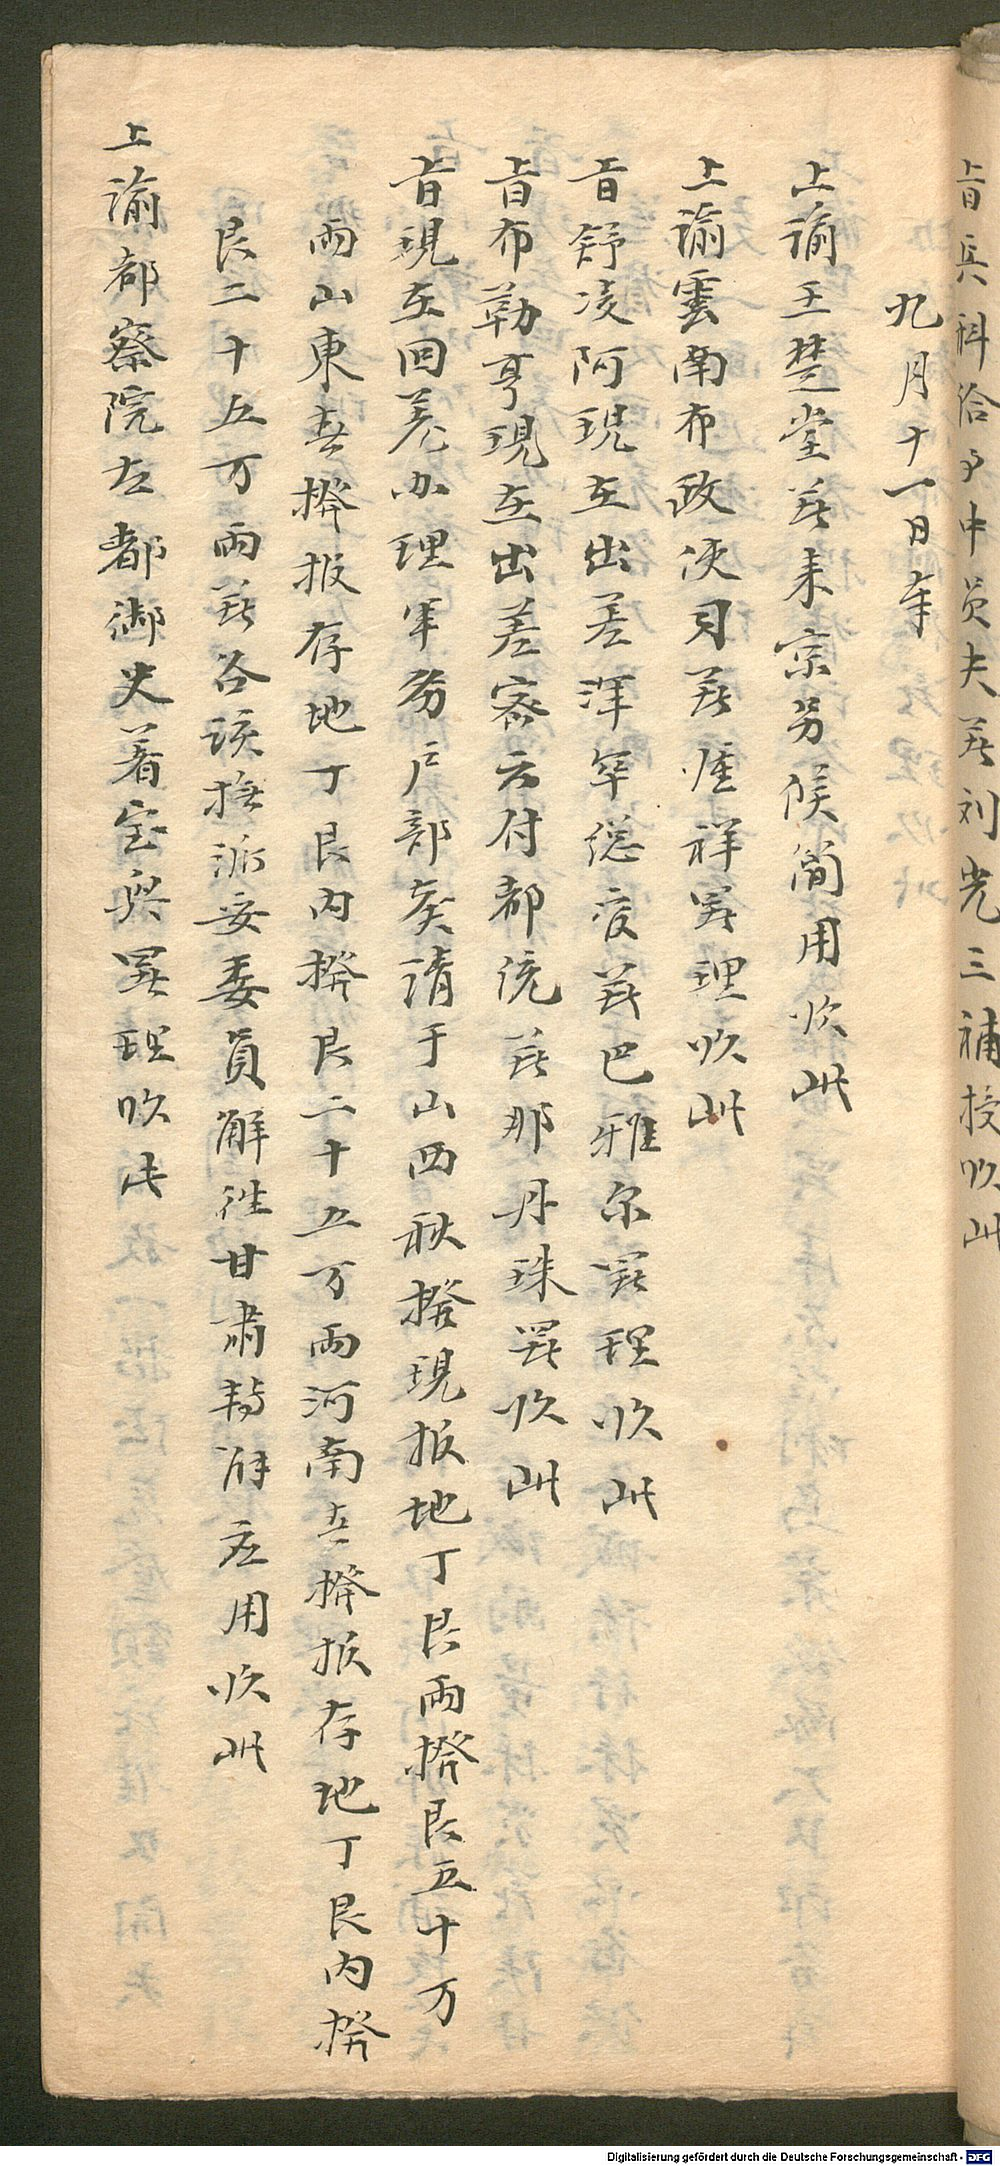 旨兵科給事中員夫着刘光三補授欽此
九月十一日奉
上諭王楚堂着来京另候简用欽此
上諭雲南布政使司着瑞祥署理欽此
旨舒凌阿現在出差洋军总度着巴雅尔署理欽此
旨布勒亨現在出差密云付都统着那丹珠署欽此
旨現在回羌办理军务户部奏請于山西秋撥現报地丁艮兩撥艮五十万
兩山東春撥报存地丁艮内撥艮二十五万兩河南春撥报存地丁艮内撥
艮二十五万兩着各該撫派妥委員解往甘肃转解应用欽此
上諭都察院左都御史着宝興署理欽此
Digitalisierung gefördert durch die Deutsche Forschungsgemeinschaft - DFG